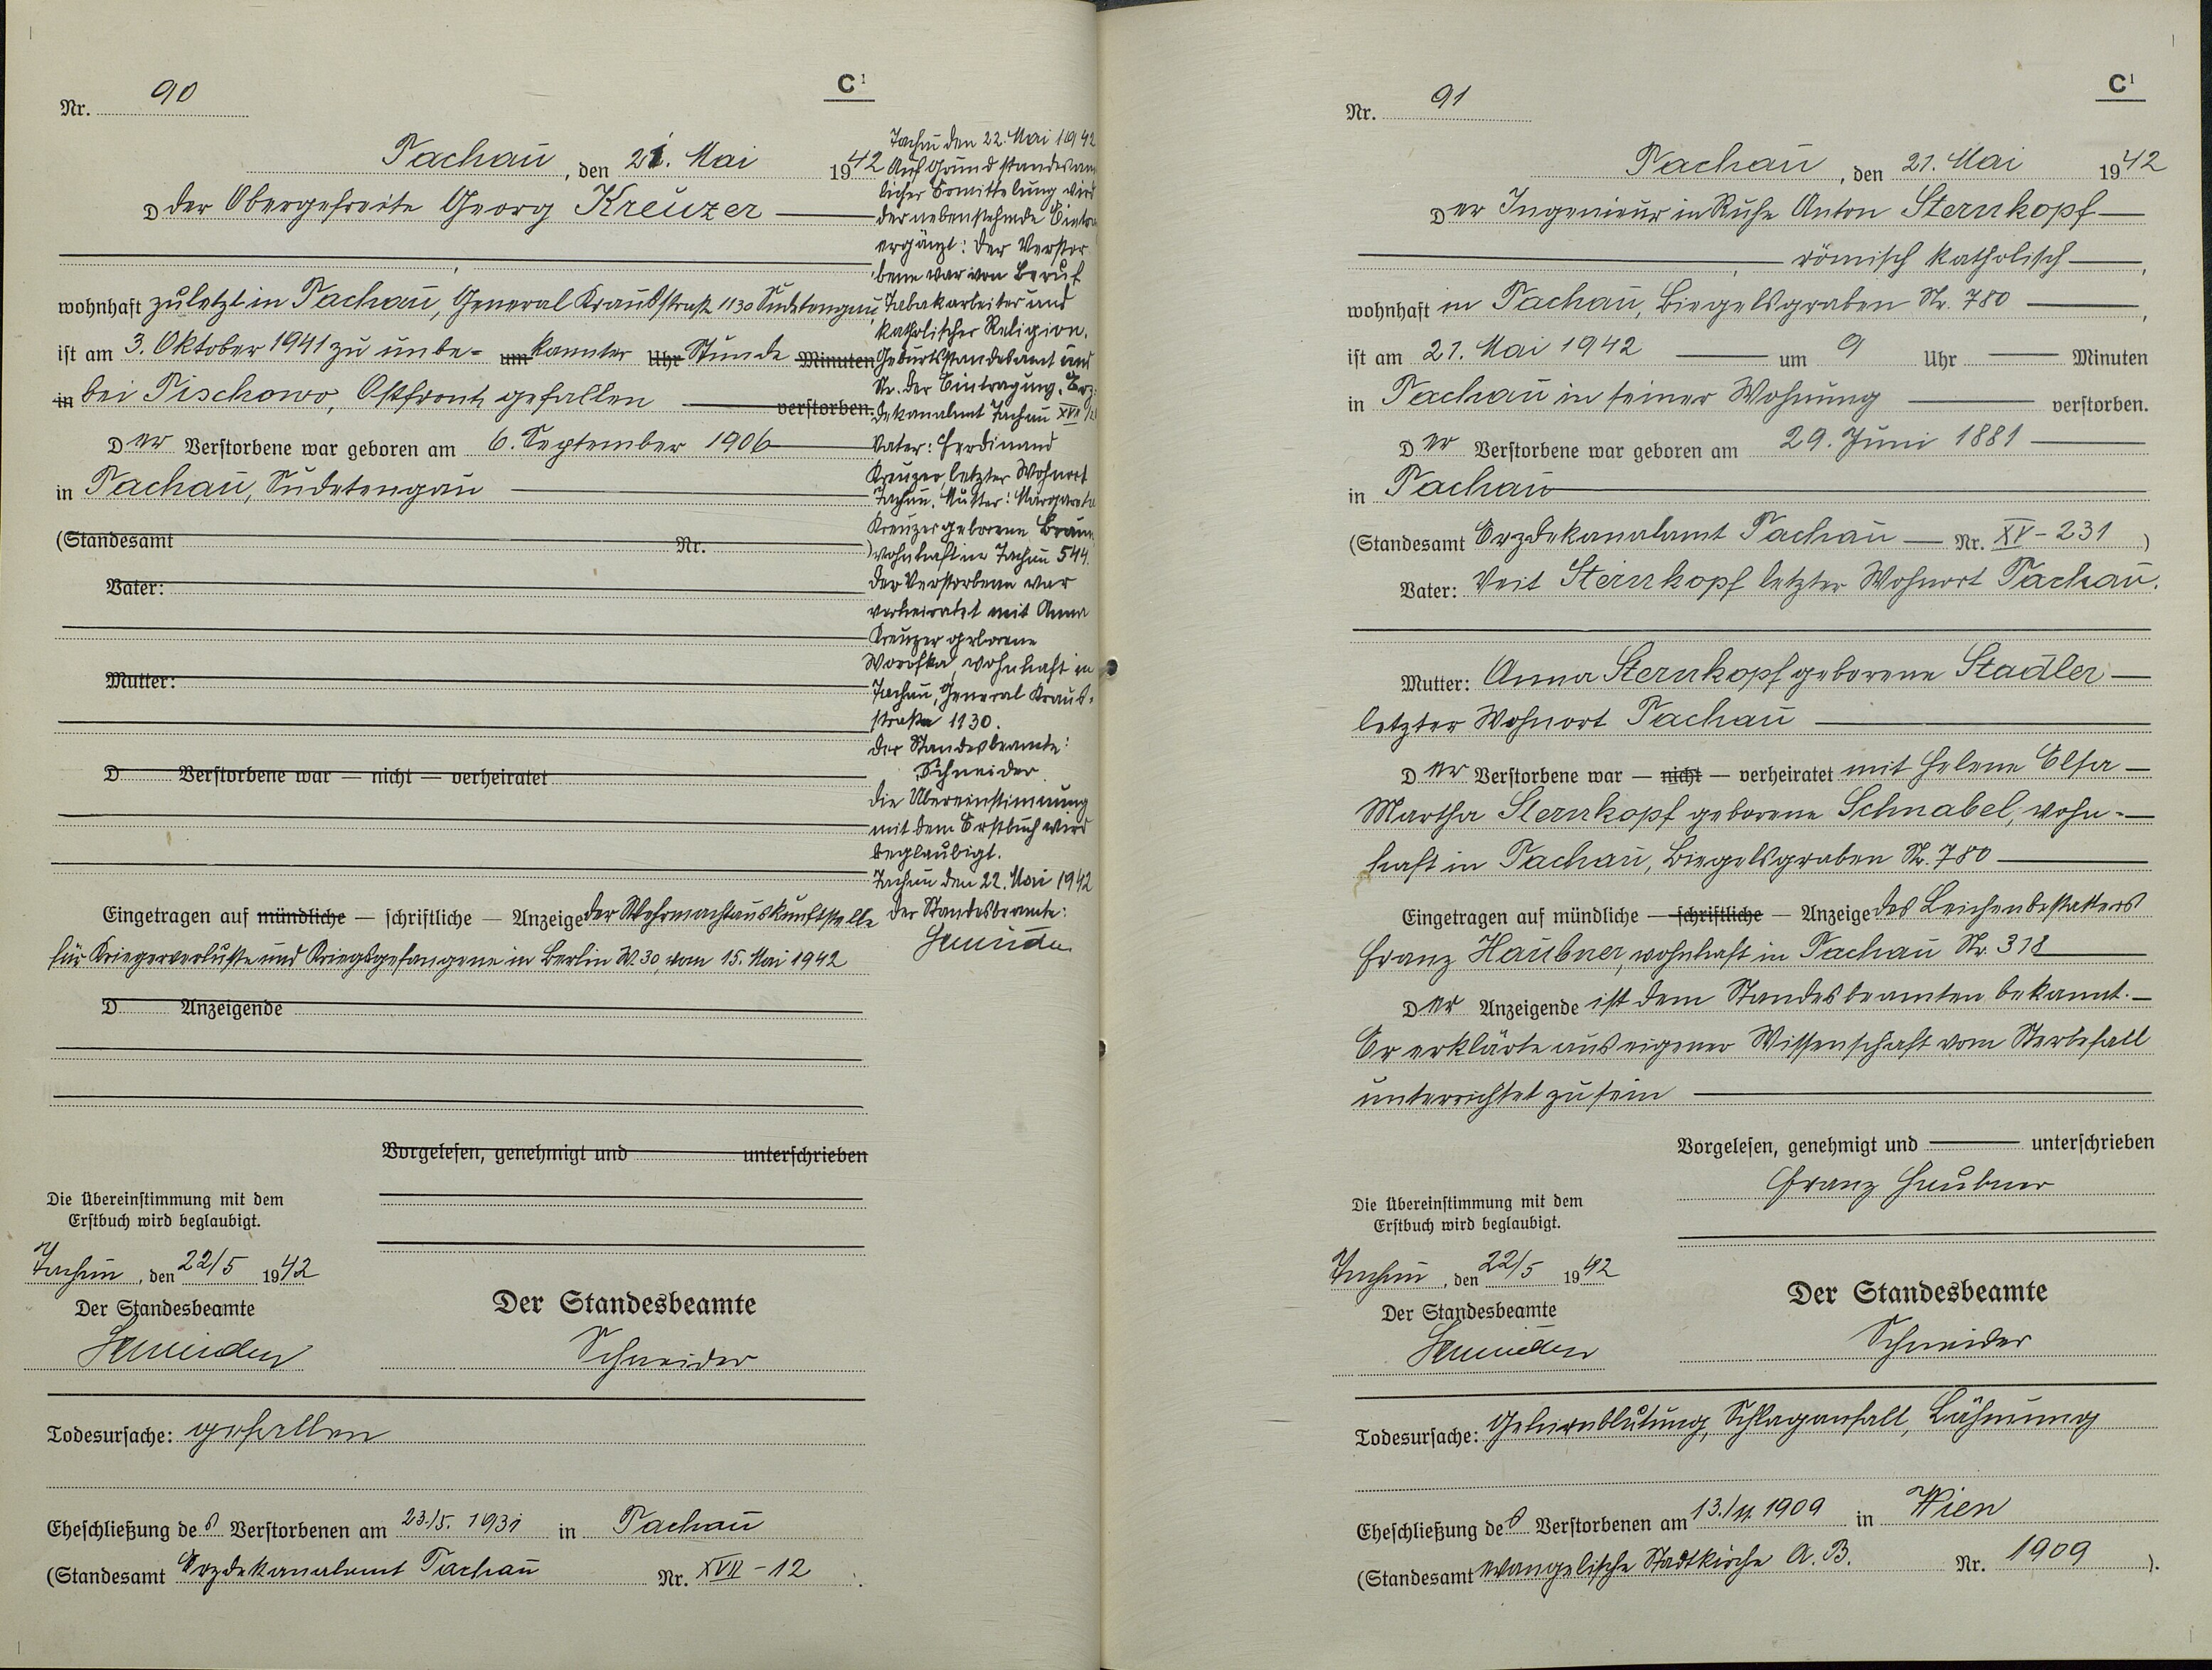 Nr. 90
C¹
Tachau, den 21. Mai 1942
D der Obergefreite Georg Kreuzer
wohnhaft zuletzt in Tachau, General Kraußstraße 1130 Sudetengau,
ist am 3. Oktober 1941 zu unbe- um kannter Uhr Stunde Minuten
in bei Tischowo, Ostfront gefallen verstorben.
Der Verstorbene war geboren am 6. September 1906
in Tachau, Sudetengau
(Standesamt Nr. )
Vater:
Mutter:
D Verstorbene war — nicht — verheiratet
Eingetragen auf mündliche — schriftliche — Anzeige der Wehrmachtauskunftstelle
für Kriegerverluste und Kriegsgefangene in Berlin W. 30, vom 15. Mai 1942
D Anzeigende
Vorgelesen, genehmigt und unterschrieben
Die Übereinstimmung mit dem
Erstbuch wird beglaubigt.
Tachau, den 22/5 1942
Der Standesbeamte
Schneider
Der Standesbeamte
Schneider
Todesursache: gefallen
Eheschließung des Verstorbenen am 23./5. 1931 in Tachau
(Standesamt Erzdekanalamt Tachau Nr. XVII - 12 ).
Tachau den 22. Mai 1942
Auf Grund standesamt
licher Ermittelung wird
der nebenstehende Eintrag
ergänzt: Der Verstor
bene war von Beruf
Tabakarbeiter und
katholischer Religion.
Geburtsstandesamt und
Nr. der Eintragung: Erz-
dekanalamt Tachau XVII
Vater: Ferdinand
Kreuzer, letzter Wohnort
Tachau. Mutter: Margareta
Kreuzer geborene Braun
wohnhaft in Tachau 544.
Der Verstorbene war
verheiratet mit Anna
Kreuzer geborene
Worofka, wohnhaft in
Tachau, General Krauß-
straße 1130.
Der Standesbeamte:
Schneider.
Die Übereinstimmung
mit dem Erstbuch wird
beglaubigt.
Tachau den 22. Mai 1942
Der Standesbeamte:
Schneider
Nr. 91
C¹
Tachau, den 21. Mai 1942
Der Ingenieur in Ruhe Anton Sternkopf
römisch katholisch,
wohnhaft in Tachau, Biegelsgraben Nr. 780,
ist am 21. Mai 1942 um 9 Uhr Minuten
in Tachau in seiner Wohnung verstorben.
Der Verstorbene war geboren am 29. Juni 1881
in Tachau
(Standesamt Erzdekanalamt Tachau Nr. XV - 231 )
Vater: Veit Sternkopf letzter Wohnort Tachau.
Mutter: Anna Sternkopf geborene Stadler
letzter Wohnort Tachau
Der Verstorbene war — nicht — verheiratet mit Helene Elsa
Martha Sternkopf geborene Schnabel, wohn-
haft in Tachau, Biegelsgraben Nr. 780
Eingetragen auf mündliche — schriftliche — Anzeige des Leichenbestatters
Franz Haubner, wohnhaft in Tachau Nr. 318
Der Anzeigende ist dem Standesbeamten bekannt.
Er erklärte aus eigener Wissenschaft vom Sterbefall
unterrichtet zu sein
Vorgelesen, genehmigt und unterschrieben
Franz Haubner
Die Übereinstimmung mit dem
Erstbuch wird beglaubigt.
Tachau, den 22/5 1942
Der Standesbeamte
Schneider
Der Standesbeamte
Schneider
Todesursache: Gehirnblutung, Schlaganfall, Lähmung
Eheschließung des Verstorbenen am 13./11. 1909 in Wien
(Standesamt evangelische Stadtkirche A. B. Nr. 1909 ).